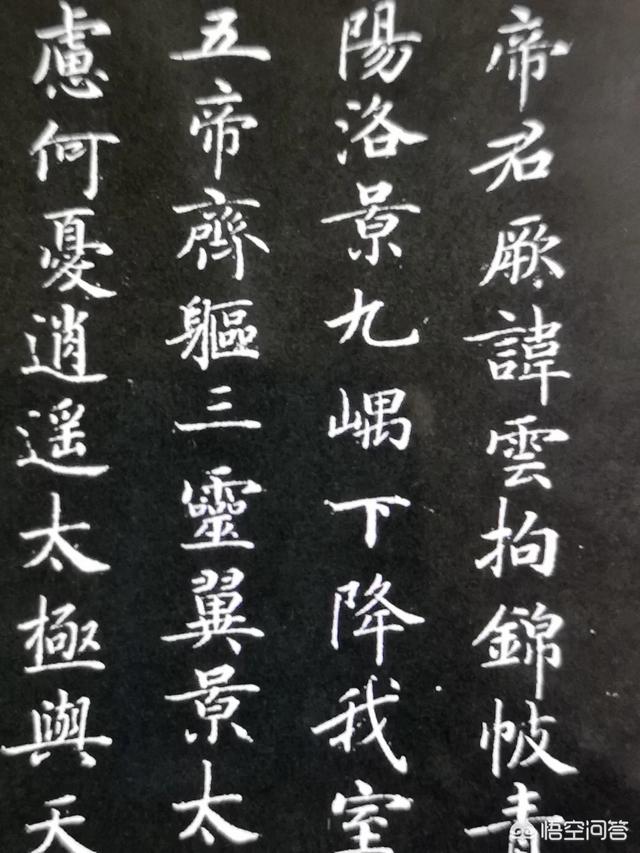 帝君厥諱雲拘錦帔青
陽洛景九嵎下降我室
五帝齊軀三靈翼景太
慮何憂逍遥太極與天
悟空问答